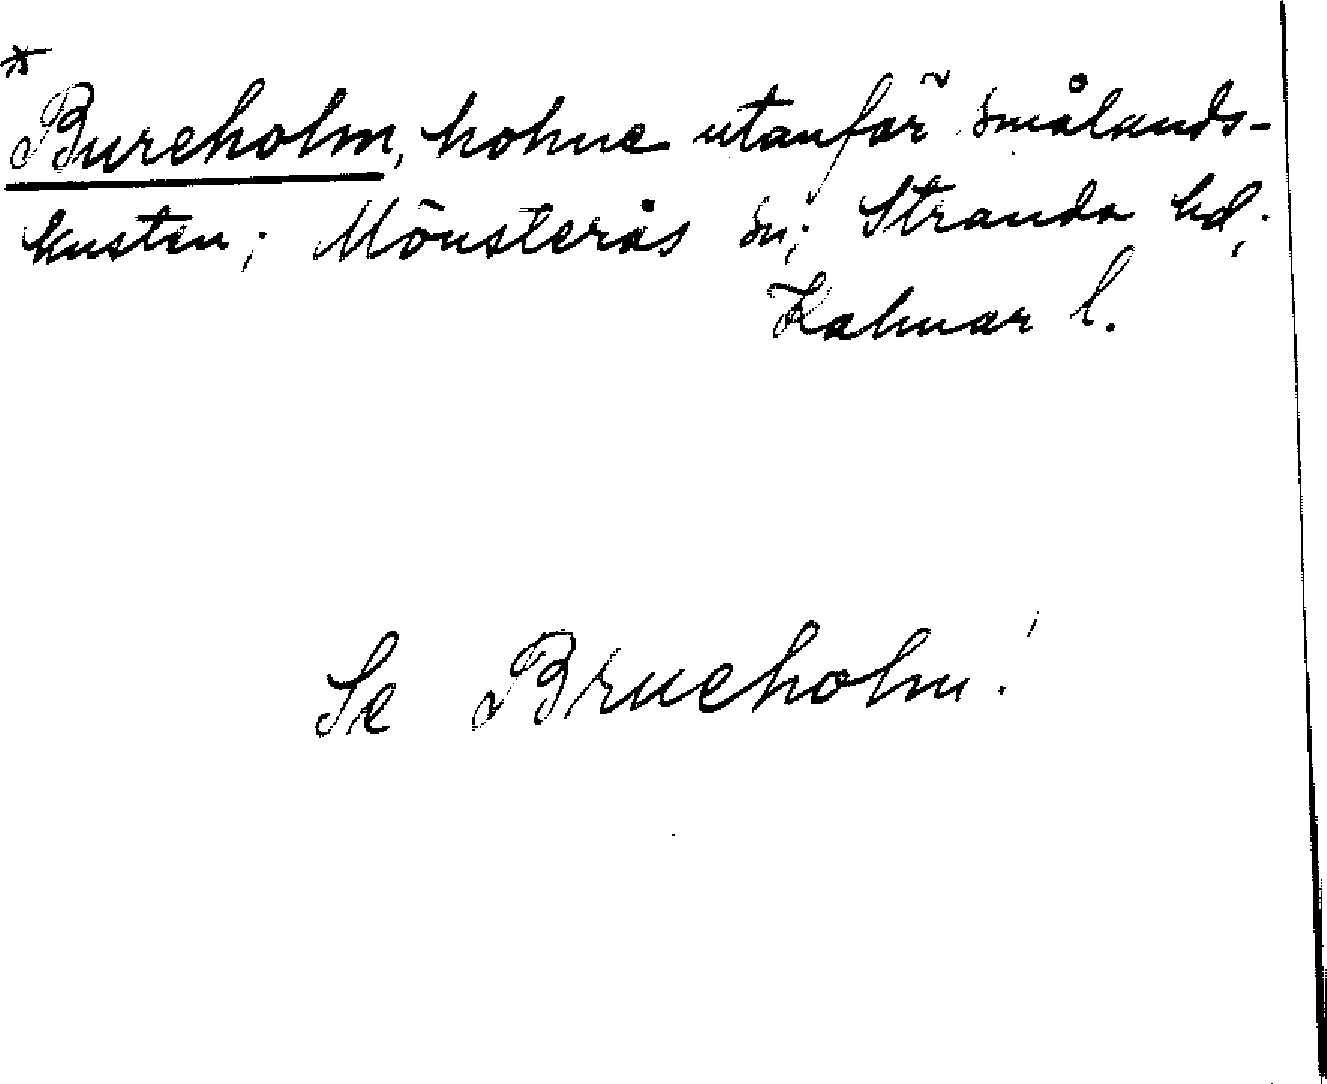 *
Bureholm, holme utanför smålands-
kusten; Mönsterås sn; Stranda hd;
Kalmar l.
Se Brueholm!